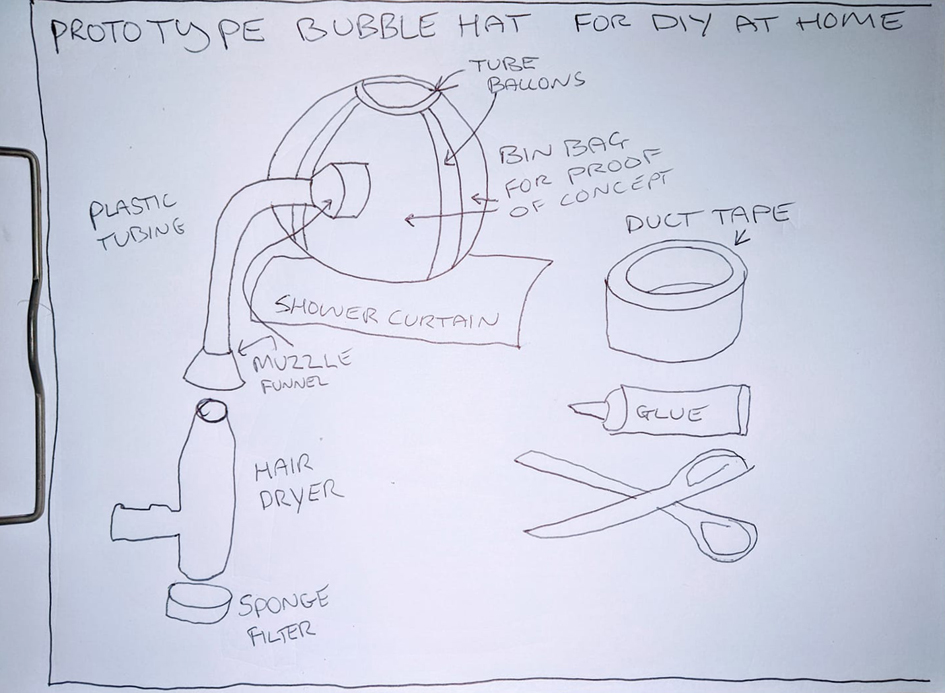 PROTOTYPE BUBBLE HAT FOR DIY AT HOME
TUBE
BALLONS
BIN BAG
FOR PROOF
OF CONCEPT
PLASTIC
TUBING
DUCT TAPE
SHOWER CURTAIN
MUZZLE
FUNNEL
GLUE
HAIR
DRYER
SPONGE
FILTER